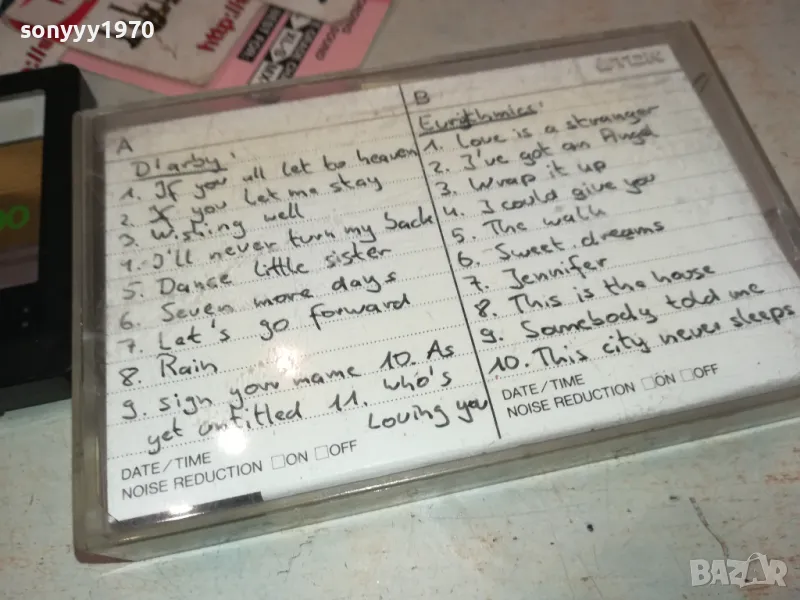 sonyyy1970
http://
A
D'arby'
1. If you all let to heaven
2. If you let me stay
3. Wishing well
4. I'll never turn my back
5. Dance little sister
6. Seven more days
7. Let's go forward
8. Rain
9. sign your name 10. As
yet untitled 11. who's
Loving you
DATE/TIME
NOISE REDUCTION □ON □OFF
B
TDK
Eurythmics'
1. Love is a stranger
2. I've got an Angel
3. Wrap it up
4. I could give you
5. The walk
6. Sweet dreams
7. Jennifer
8. This is the house
9. Somebody told me
10. This city never sleeps
DATE/TIME
NOISE REDUCTION □ON □OFF
BAZAR